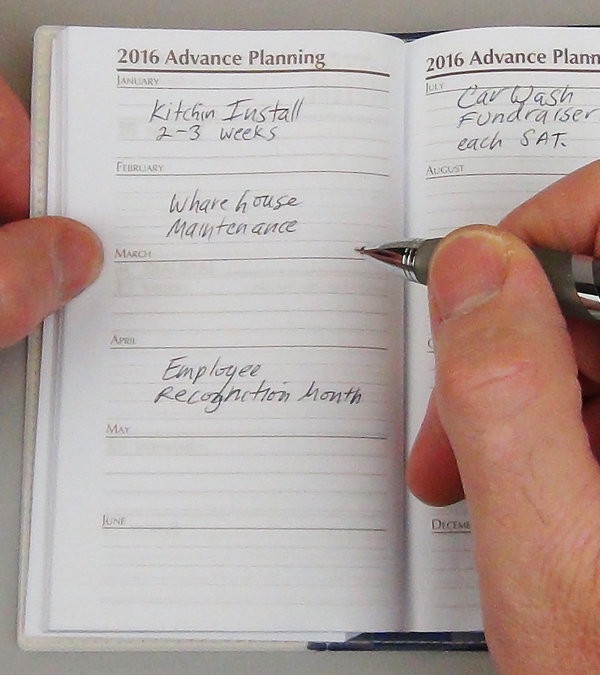 2016 Advance Planning
JANUARY
Kitchin Install
2-3 weeks
FEBRUARY
Wharehouse
Maintenance
MARCH
APRIL
Employee
Recognition Month
MAY
JUNE
2016 Advance Plann
JULY
Car Wash
Fundraiser
each SAT.
AUGUST
DECEME